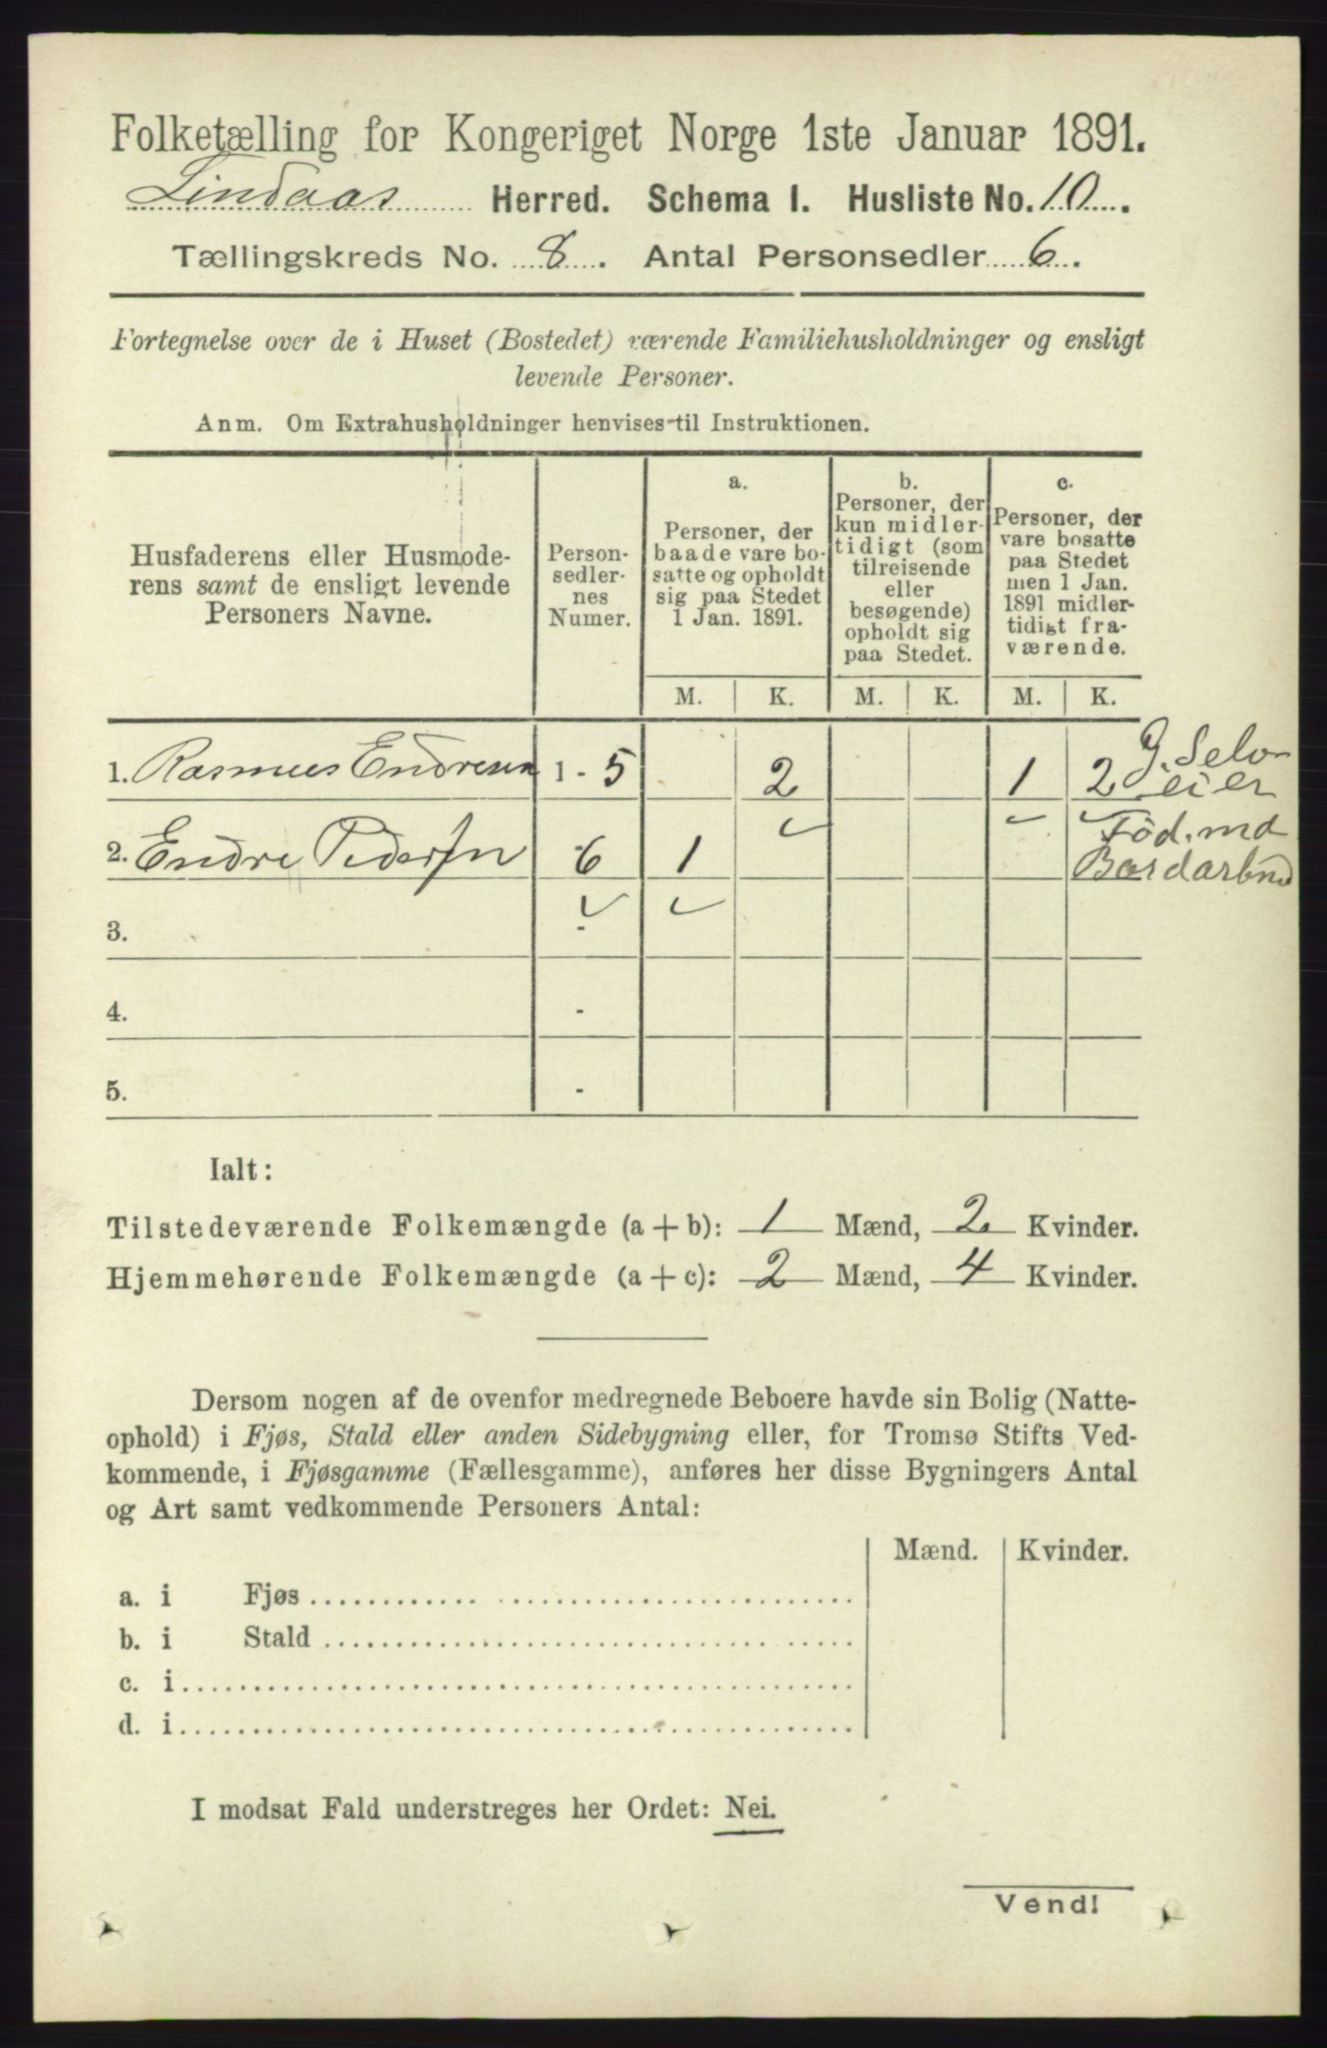 Folketælling for Kongeriget Norge 1ste Januar 1891.
Lindaas Herred. Schema I. Husliste No. 10.
Tællingskreds No. 8. Antal Personsedler 6.
Fortegnelse over de i Huset (Bostedet) værende Familiehusholdninger og ensligt
levende Personer.
Anm. Om Extrahusholdninger henvises til Instruktionen.
Husfaderens eller Husmode-
rens samt de ensligt levende
Personers Navne.
Person-
sedler-
nes
Numer.
a.
Personer, der
baade vare bo-
satte og opholdt
sig paa Stedet
1 Jan. 1891.
b.
Personer, der
kun midler-
tidigt (som
tilreisende
eller
besøgende)
opholdt sig
paa Stedet.
c.
Personer, der
vare bosatte
paa Stedet
men 1 Jan.
1891 midler-
tidigt fra-
værende.
M. K. M. K. M. K.
1. Rasmus Endresen 1 - 5 2 1 2 G. Selv-
eier
2. Endre Pedersen 6 1 Fød. md
3. -
4. -
5. -
Ialt:
Tilstedeværende Folkemængde (a + b): 1 Mænd, 2 Kvinder.
Hjemmehørende Folkemængde (a + c): 2 Mænd, 4 Kvinder.
Dersom nogen af de ovenfor medregnede Beboere havde sin Bolig (Natte-
ophold) i Fjøs, Stald eller anden Sidebygning eller, for Tromsø Stifts Ved-
kommende, i Fjøsgamme (Fællesgamme), anføres her disse Bygningers Antal
og Art samt vedkommende Personers Antal:
Mænd. Kvinder.
a. i Fjøs
b. i Stald
c. i
d. i
I modsat Fald understreges her Ordet: Nei.
Vend!